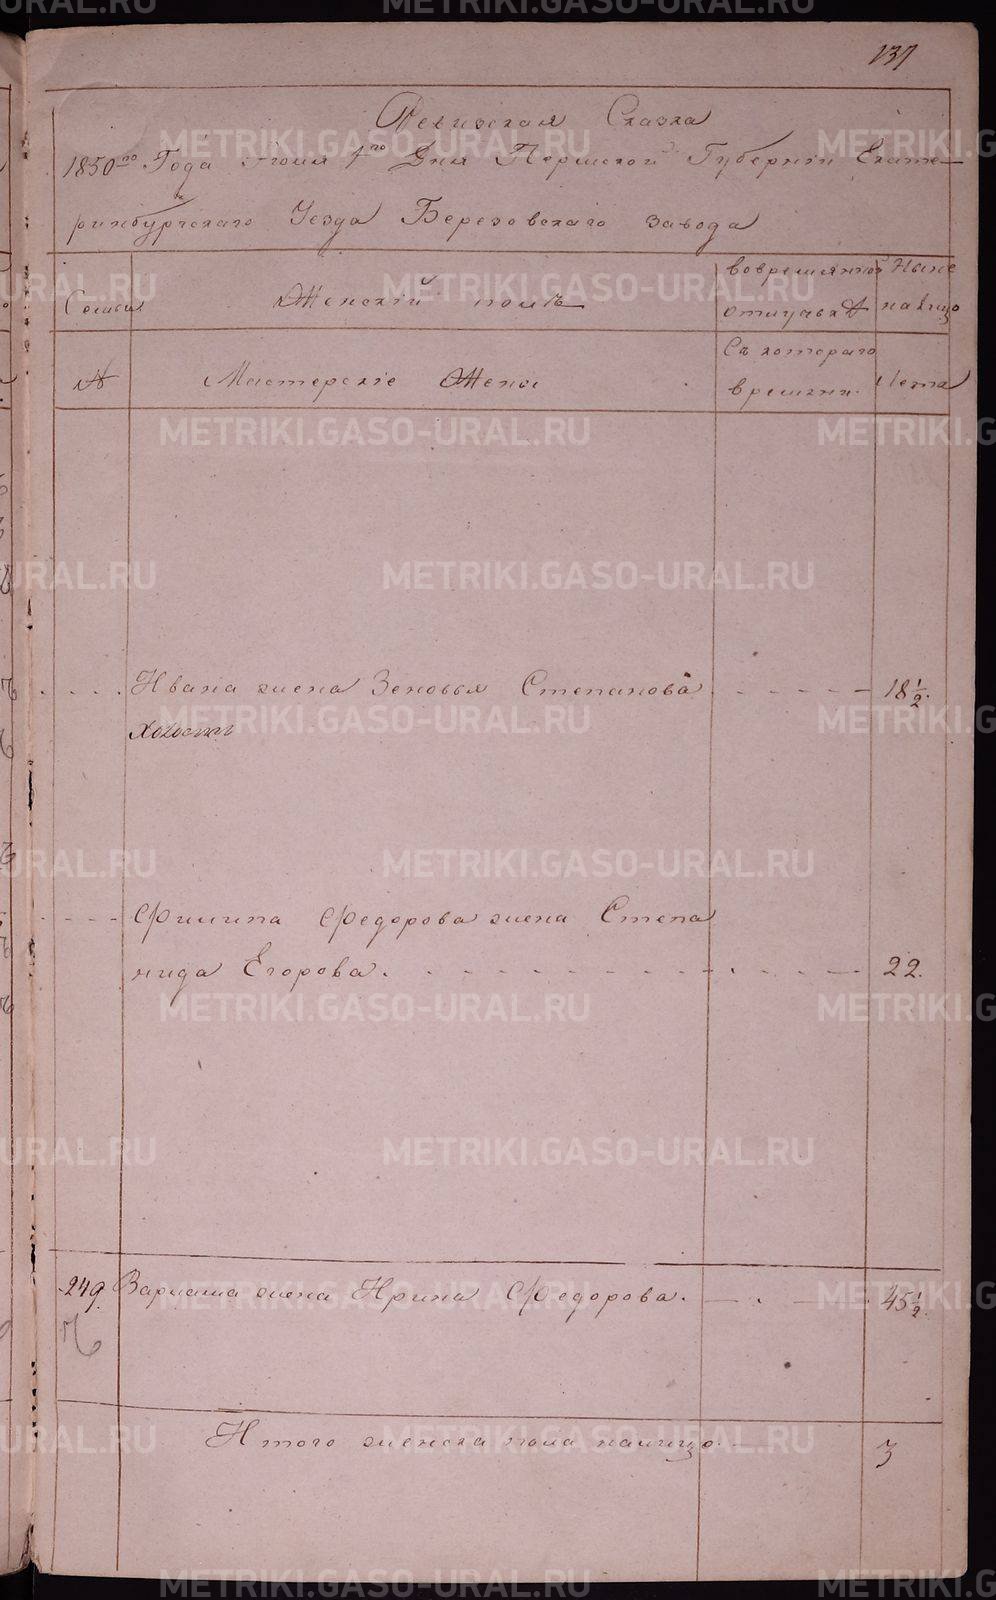 137
Ревизская Сказка
1850го Года Июля 1го Дня Пермской Губернiи Екате-
ринбургскаго Уезда Березовскаго завода
Семьи
Женскiй полъ
вовременной
отлучьке
Ныне
налицо
№
Мастерскiе Жены
Съ котораго
времени
Лета
Ивана жена Зеновья Степанова 18 1/2
холост
Филипа Федорова жена Степа
нида Егорова. 22.
249. Варлама жена Ирина Федорова. 45 1/2
Итого женска пола налицо 3
METRIKI.GASO-URAL.RU